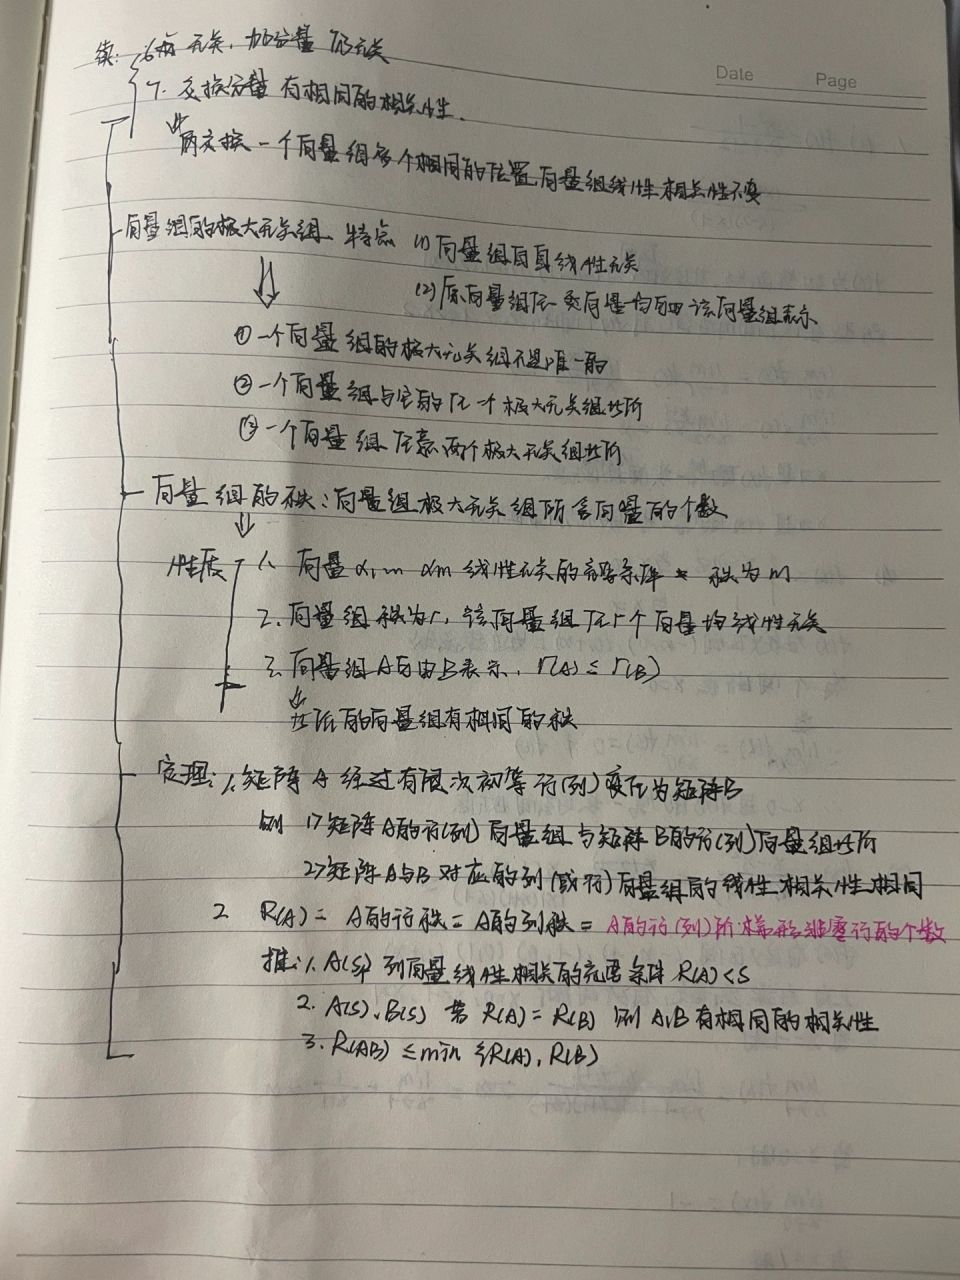 Date Page
续: 6. 无关, 加分量 仍无关
7. 交换分量 有相同的相关性.
两交换一个向量组多个相同的位置,向量组线性相关性不变
向量组的极大无关组 特点 (1) 向量组自身线性无关
(2) 原向量组任一向量均可由该向量组表示
① 一个向量组的极大无关组不是唯一的
② 一个向量组与它的任一个极大无关组等价
③ 一个向量组任意两个极大无关组等价
向量组的秩: 向量组极大无关组所含向量的个数
性质 1. 向量α1, … αm 线性无关的充要条件 秩为m
2. 向量组秩为r, 该向量组任r个向量均线性无关
3. 向量组A可由B表示, r(A) ≤ r(B)
等价的向量组有相同的秩
定理: 1. 矩阵A经过有限次初等行(列)变换为矩阵B
则 1> 矩阵A的行(列)向量组与矩阵B的行(列)向量组等价
2> 矩阵A与B对应的列(或行)向量组的线性相关性相同
2 R(A) = A的行秩 = A的列秩 = A的行(列)阶梯形非零行的个数
推: 1. A(s) 列向量线性相关的充要条件 R(A) < s
2. A(s), B(s) 若 R(A) = R(B) 则 A,B 有相同的相关性
3. R(AB) ≤ min {R(A), R(B)